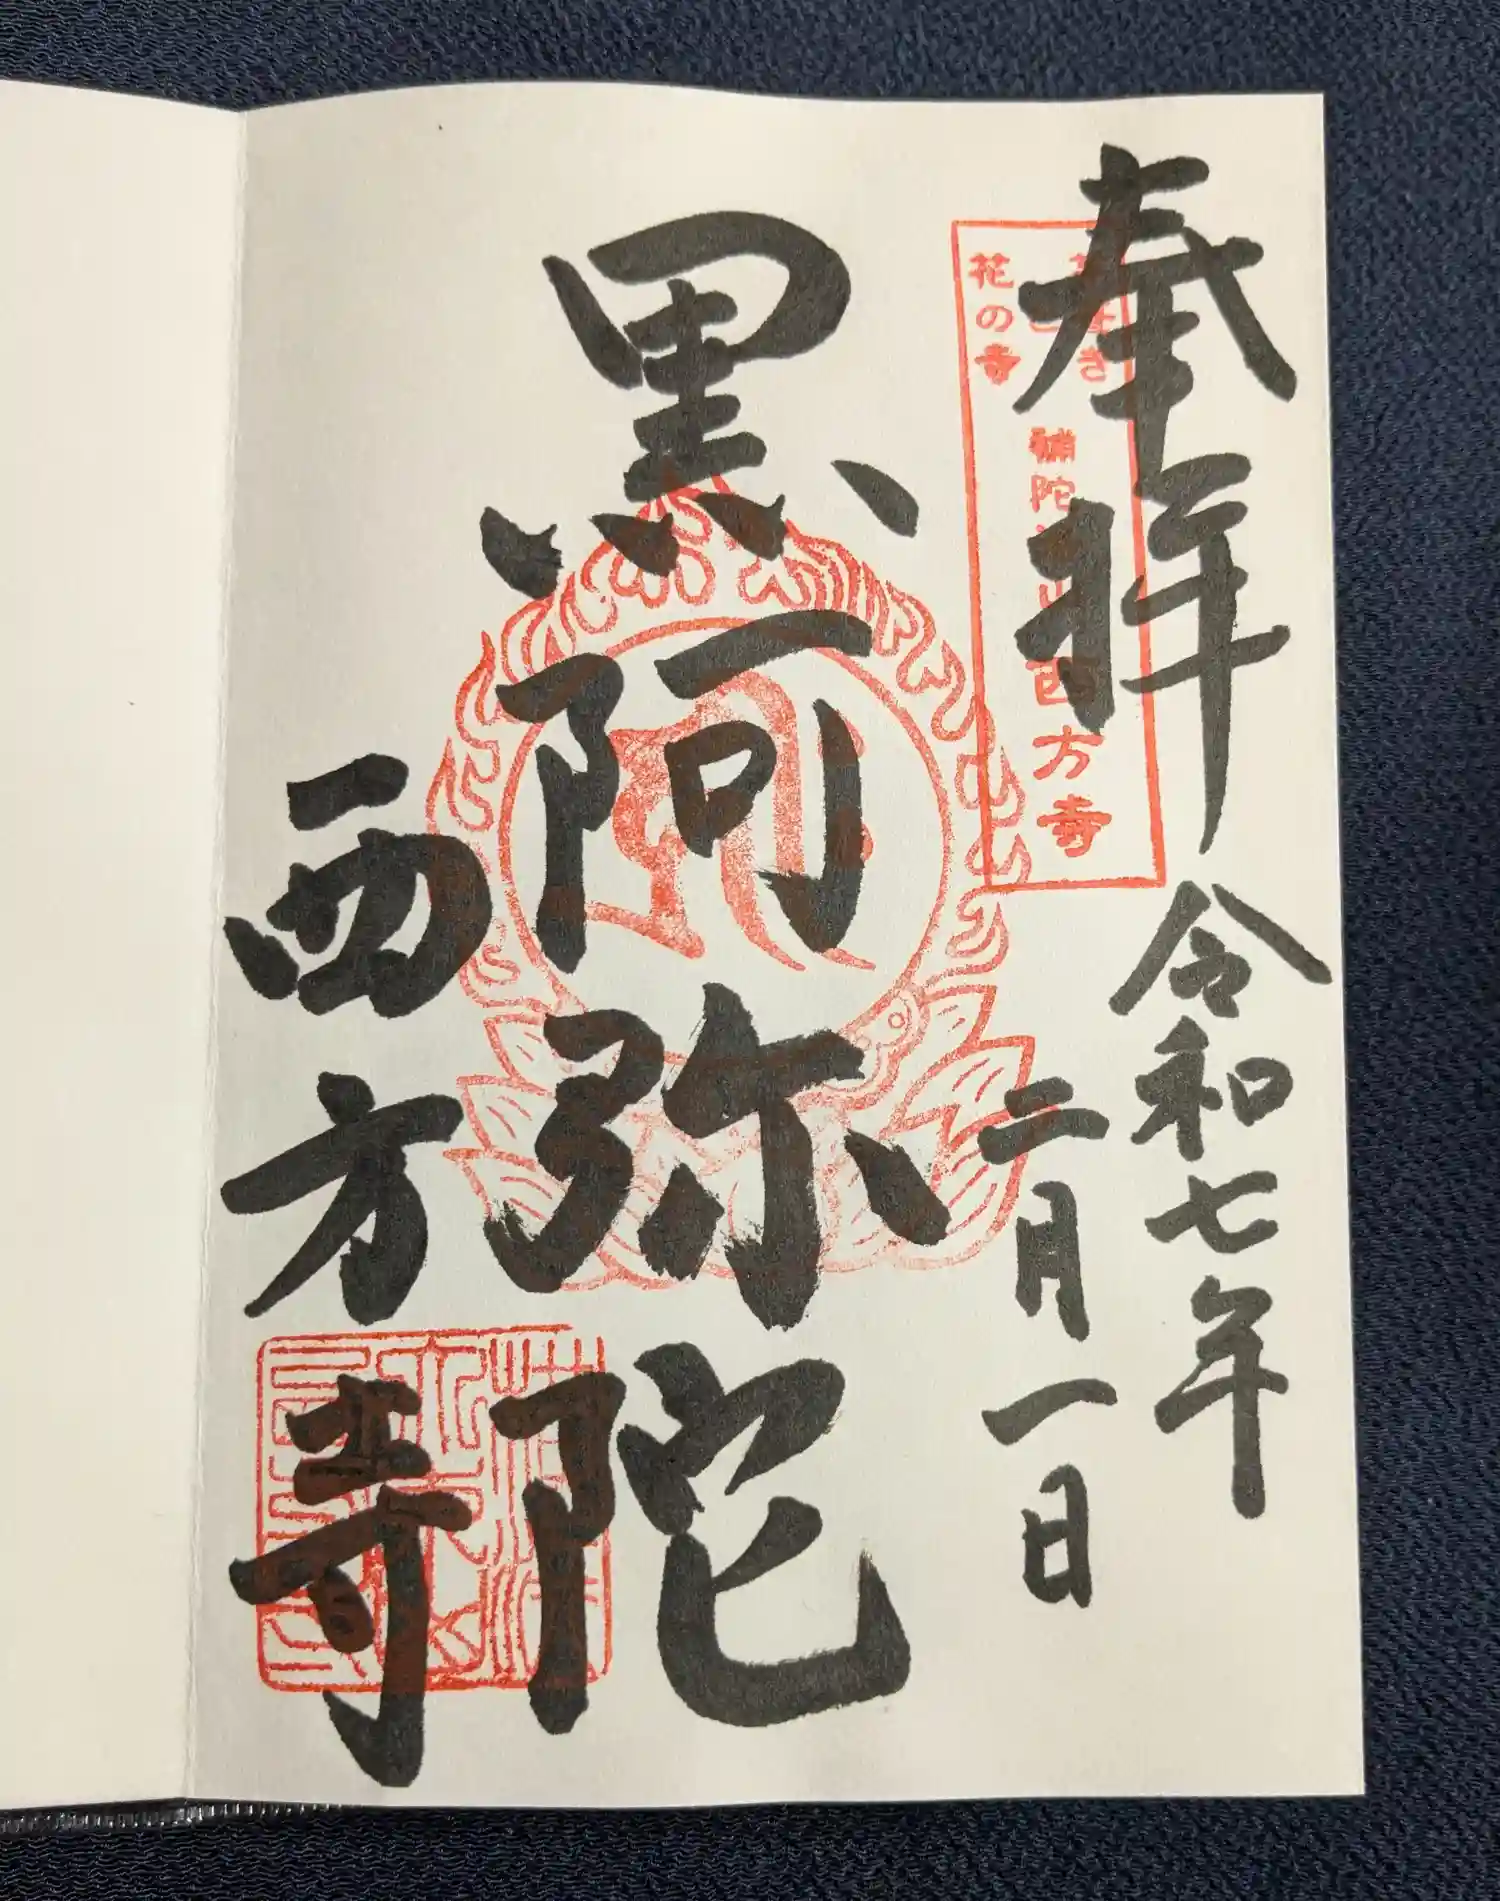 奉拝
令和七年
二月一日
花の寺
補陀
西方寺
黒阿弥陀
西方寺